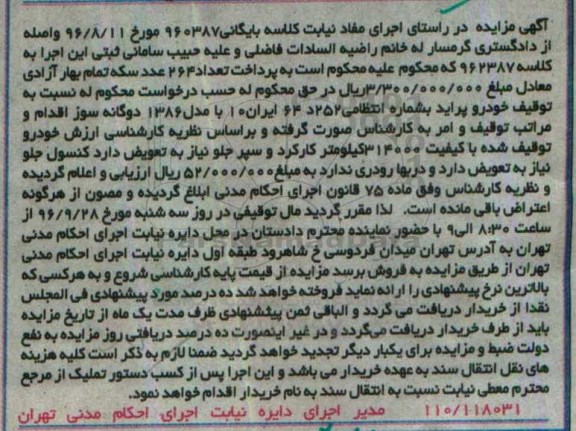 آگهی مزایده در راستای اجرای مفاد نیابت کلاسه بایگانی۹۶۰۳۸۷ مورخ ۹۶/۸/۱۱ واصله
از دادگستری گرمسار له خانم راضیه السادات فاضلی و علیه حبیب سامانی ثبتی این اجرا به
کلاسه ۹۶۲۳۸۷ که محکوم علیه محکوم است به پرداخت تعداد۲۶۴ عدد سکه تمام بهار آزادی
معادل مبلغ ۳/۳۰۰/۰۰۰/۰۰۰ریال در حق محکوم له حسب درخواست محکوم له نسبت به
توقیف خودرو پراید بشماره انتظامی۲۵۲د ۶۴ ایران۱۰ با مدل۱۳۸۶ دوگانه سوز اقدام و
مراتب توقیف و امر به کارشناس صورت گرفته و براساس نظریه کارشناسی ارزش خودرو
توقیف شده با کیفیت ۳۱۴۰۰۰کیلومتر کارکرد و سپر جلو نیاز به تعویض دارد کنسول جلو
نیاز به تعویض دارد و دربها رودری ندارد به مبلغ۵۲/۰۰۰/۰۰۰ ریال ارزیابی و اعلام گردیده
و نظریه کارشناس وفق ماده ۷۵ قانون اجرای احکام مدنی ابلاغ گردیده و مصون از هرگونه
اعتراض باقی مانده است. لذا مقرر گردید مال توقیفی در روز سه شنبه مورخ ۹۶/۹/۲۸ از
ساعت ۸:۳۰ الی۹ با حضور نماینده محترم دادستان در محل دایره نیابت اجرای احکام مدنی
تهران به آدرس تهران میدان فردوسی خ شاهرود طبقه اول دایره نیابت اجرای احکام مدنی
تهران از طریق مزایده به فروش برسد مزایده از قیمت پایه کارشناسی شروع و به هرکسی که
بالاترین نرخ پیشنهادی را ارائه نماید فروخته خواهد شد ده درصد مورد پیشنهادی فی المجلس
نقدا از خریدار دریافت می گردد و الباقی ثمن پیشنهادی ظرف مدت یک ماه از تاریخ مزایده
باید از طرف خریدار دریافت می‌گردد و در غیر اینصورت ده درصد دریافتی روز مزایده به نفع
دولت ضبط و مزایده برای یکبار دیگر تجدید خواهد گردید ضمنا لازم به ذکر است کلیه هزینه
های نقل انتقال سند به عهده خریدار می باشد و این اجرا پس از کسب دستور تملیک از مرجع
محترم معطی نیابت نسبت به انتقال سند به نام خریدار اقدام خواهد نمود.
۱۱۰/۱۱۸۰۳۱ مدیر اجرای دایره نیابت اجرای احکام مدنی تهران